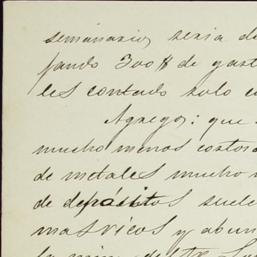 semanario, seria de
fando 300 $ de gast
les contado solo c
Agrego: que
mucho menos costos
de metales mucho
de depósitos suele
mas ricos y abun
la min